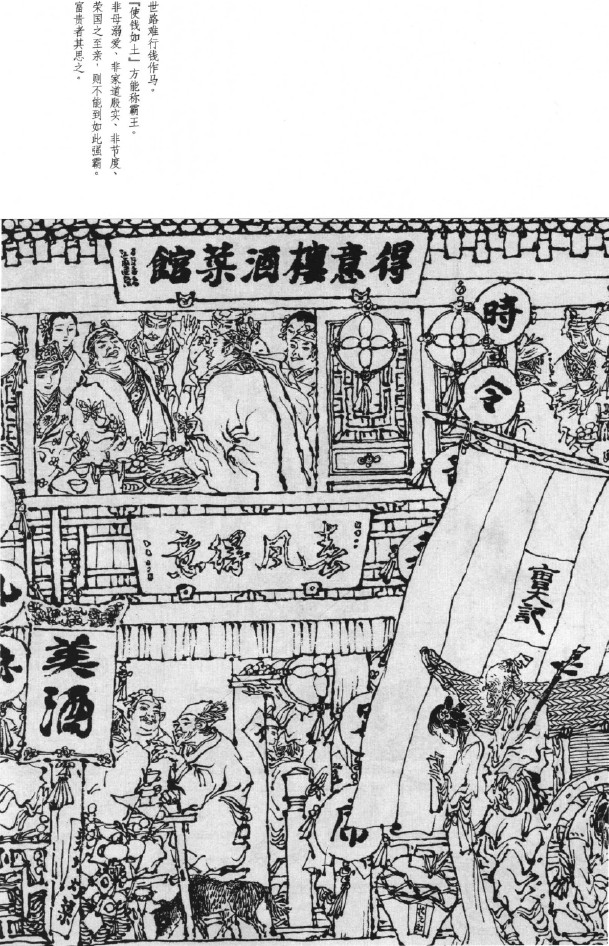 世路难行钱作马。
『使钱如土』方能称霸王。
非母溺爱、非家道殷实、非节度、
荣国之至亲，则不能到如此强霸。
富贵者其思之。
得意樓酒菜館
時令
春风得意
美酒
席